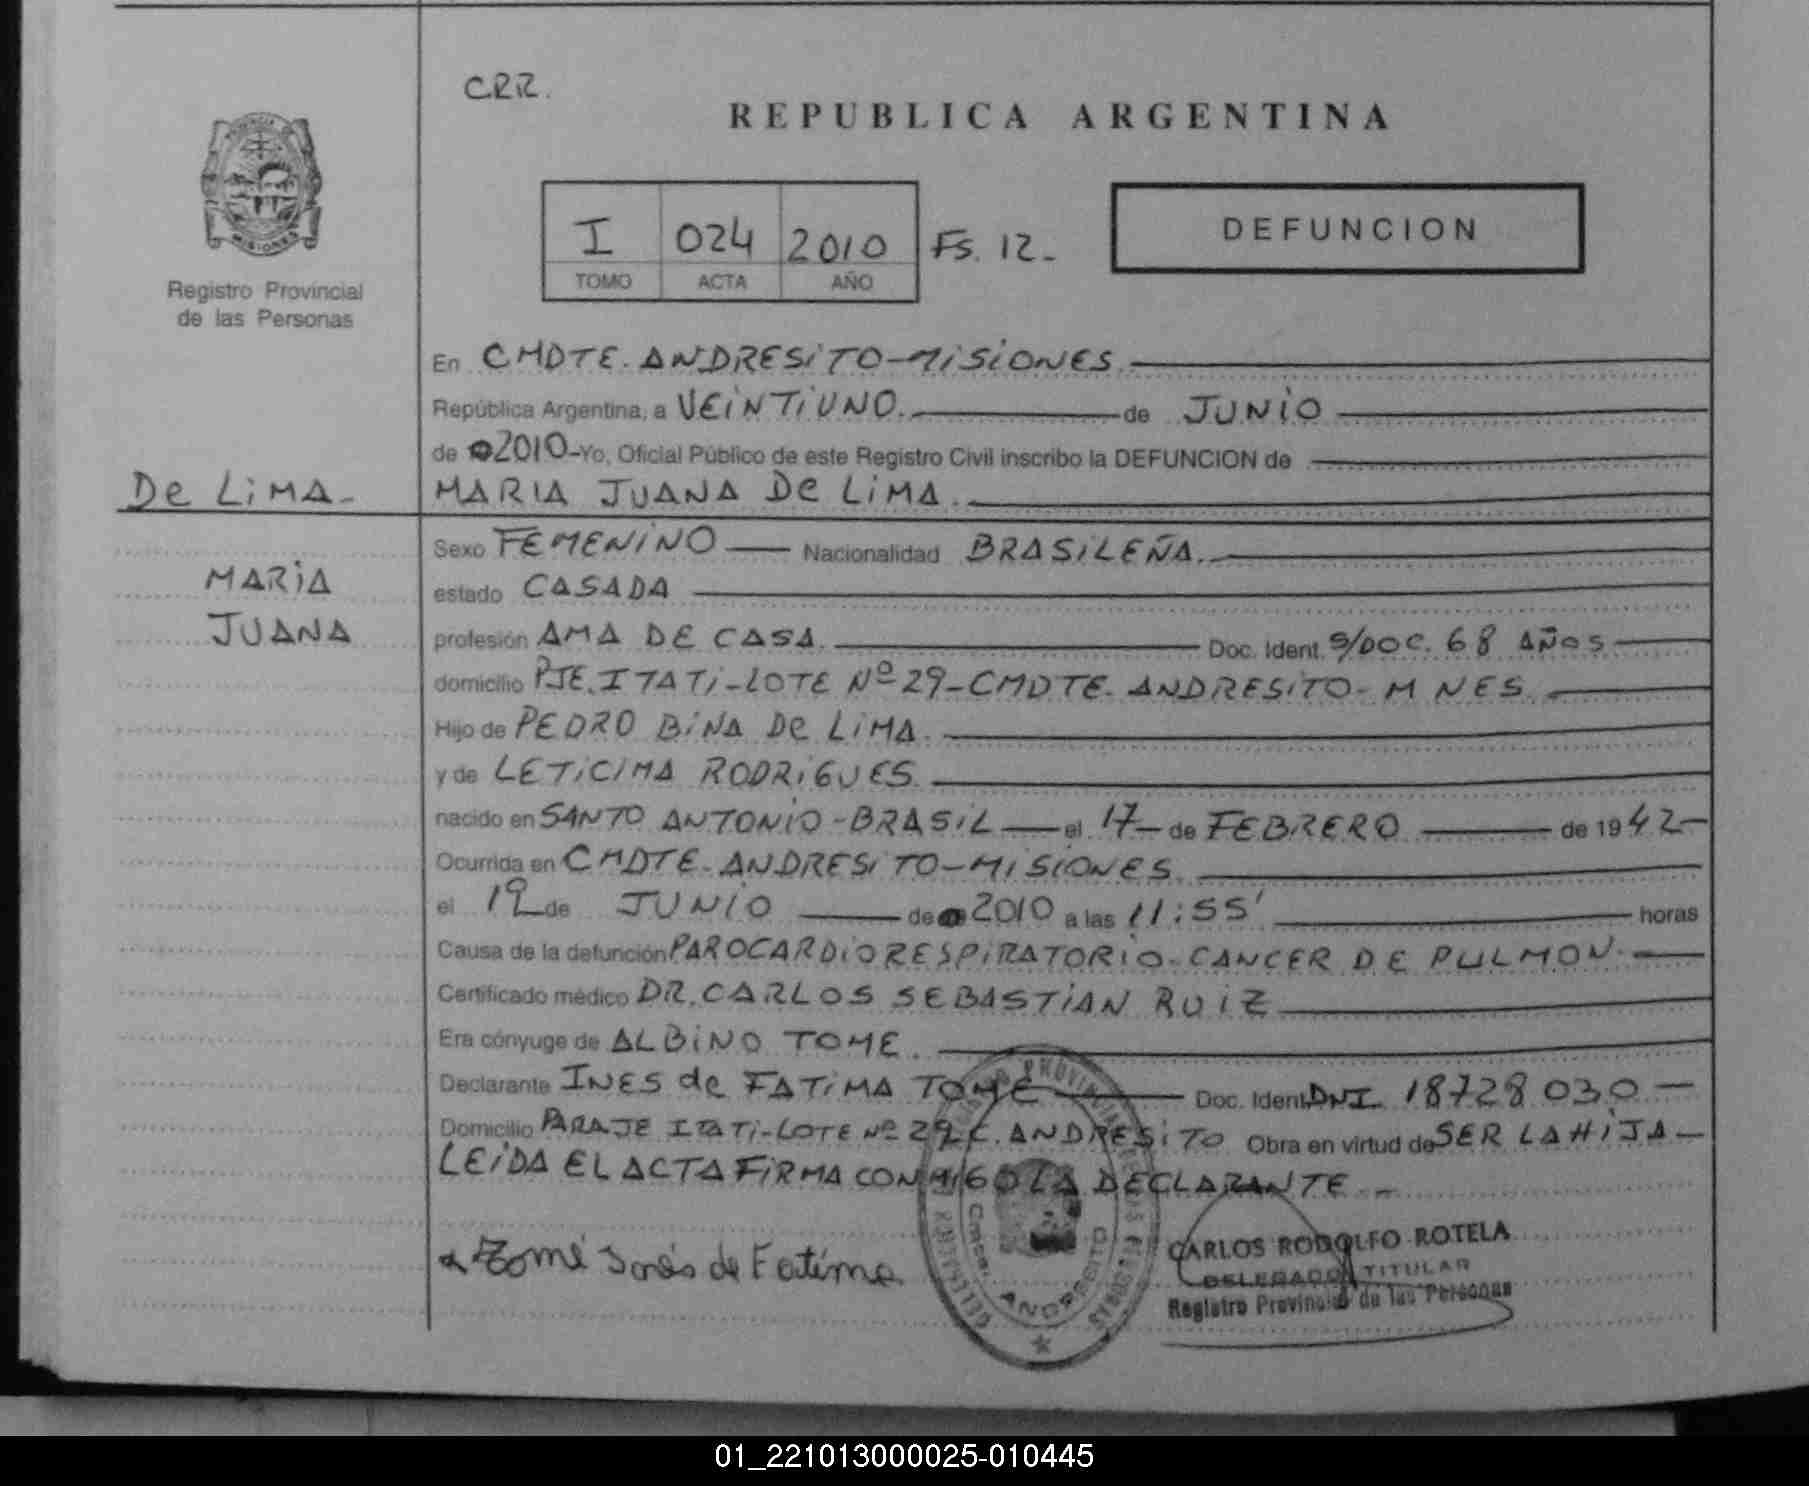 CRR.
REPUBLICA ARGENTINA
I 024 2010 Fs. 12-
TOMO ACTA AÑO
DEFUNCION
PROVINCIA DE
MISIONES
Registro Provincial
de las Personas
En CMDTE. ANDRESiTO-MiSiONES.
República Argentina, a VEiNTiUNO. de JUNiO
de 2010-Yo, Oficial Público de este Registro Civil inscribo la DEFUNCION de
De LiMA- MARIA JUANA De LiMA.
Sexo FEMENiNO Nacionalidad BRASiLEÑA.
MARiA
estado CASADA
JUANA
profesión AMA DE CASA. Doc. Ident. S/DOC. 68 AÑOS
domicilio PJE. ITATi-LOTE Nº 29-CMDTE. ANDRESiTO-MNES.
Hijo de PEDRO BiNA De LiMA.
y de LETiCiMA RODRiGUES.
nacido en SANTO ANTONiO-BRASiL el 17 de FEBRERO de 1942-
Ocurrida en CMDTE-ANDRESiTO-MiSiONES.
el 19 de JUNiO de 2010 a las 11:55' horas
Causa de la defunción PAROCARDiORESPiRATORiO-CANCER DE PULMON.
Certificado médico DR. CARLOS SEBASTiAN RUiZ
Era cónyuge de ALBiNO TOME.
Declarante INES de FATiMA TOME Doc. Ident. DNI 18728030
Domicilio PARAJE ITATi-LOTE Nº 29 C. ANDRESiTO Obra en virtud de SER LA HiJA-
LEiDA EL ACTA FiRMA CONMiGO LA DECLARANTE.-
Tomé Inés de Fatima
ANDRESITO
CARLOS RODOLFO ROTELA
DELEGADO TITULAR
Registro Provincial de las Personas
01_221013000025-010445